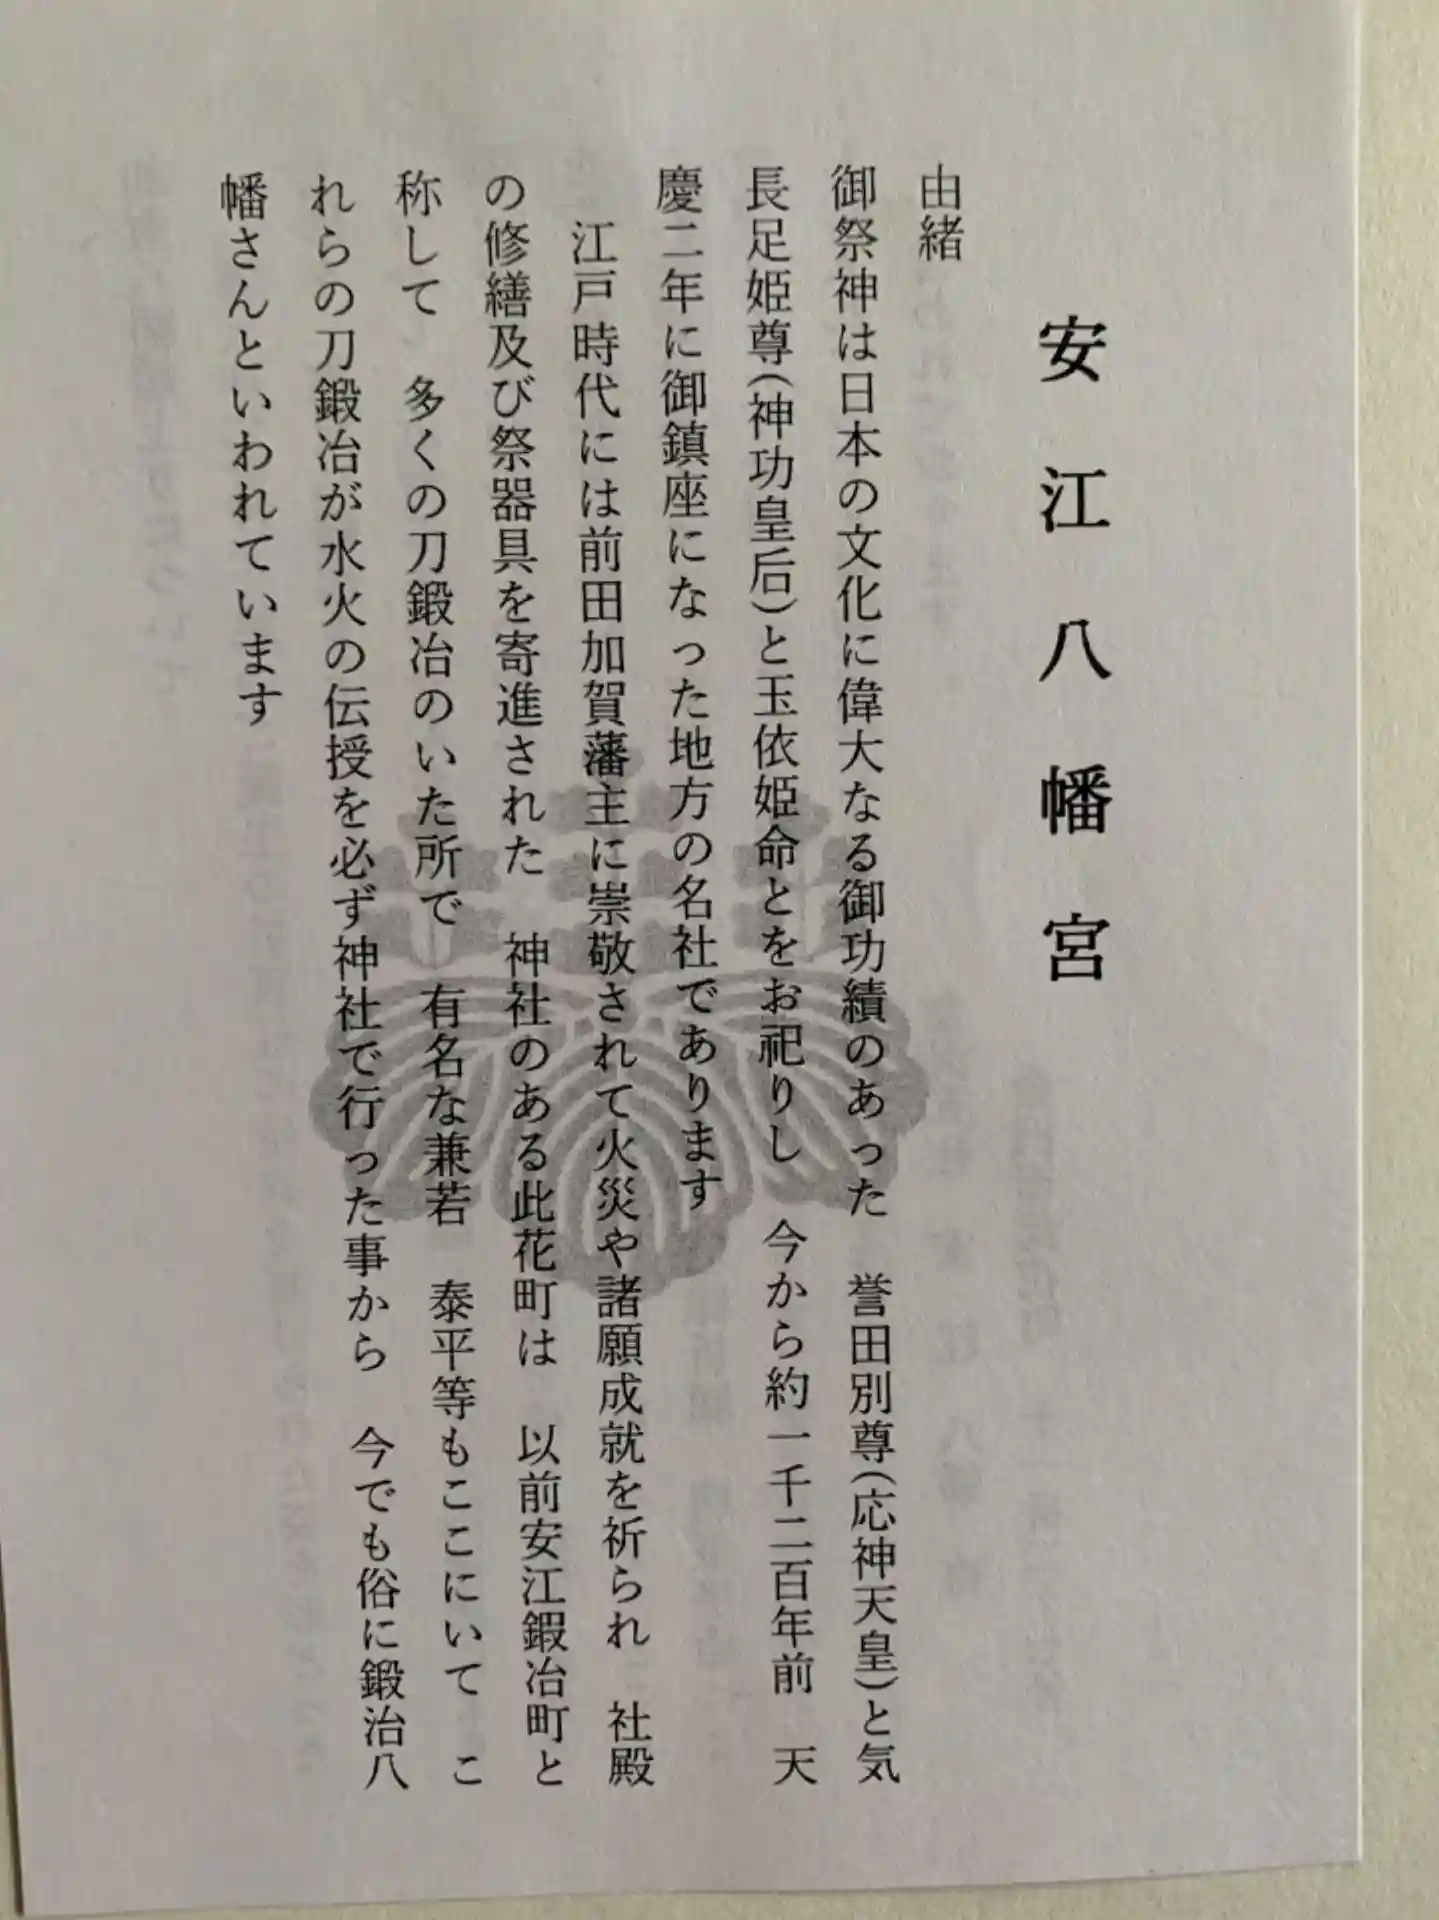 安江八幡宮
由緒
御祭神は日本の文化に偉大なる御功績のあった　誉田別尊(応神天皇)と気
長足姫尊(神功皇后)と玉依姫命とをお祀りし　今から約一千二百年前　天
慶二年に御鎮座になった地方の名社であります
江戸時代には前田加賀藩主に崇敬されて火災や諸願成就を祈られ　社殿
の修繕及び祭器具を寄進された　神社のある此花町は　以前安江鍜冶町と
称して　多くの刀鍛冶のいた所で　有名な兼若　泰平等もここにいて　こ
れらの刀鍛冶が水火の伝授を必ず神社で行った事から　今でも俗に鍛治八
幡さんといわれています